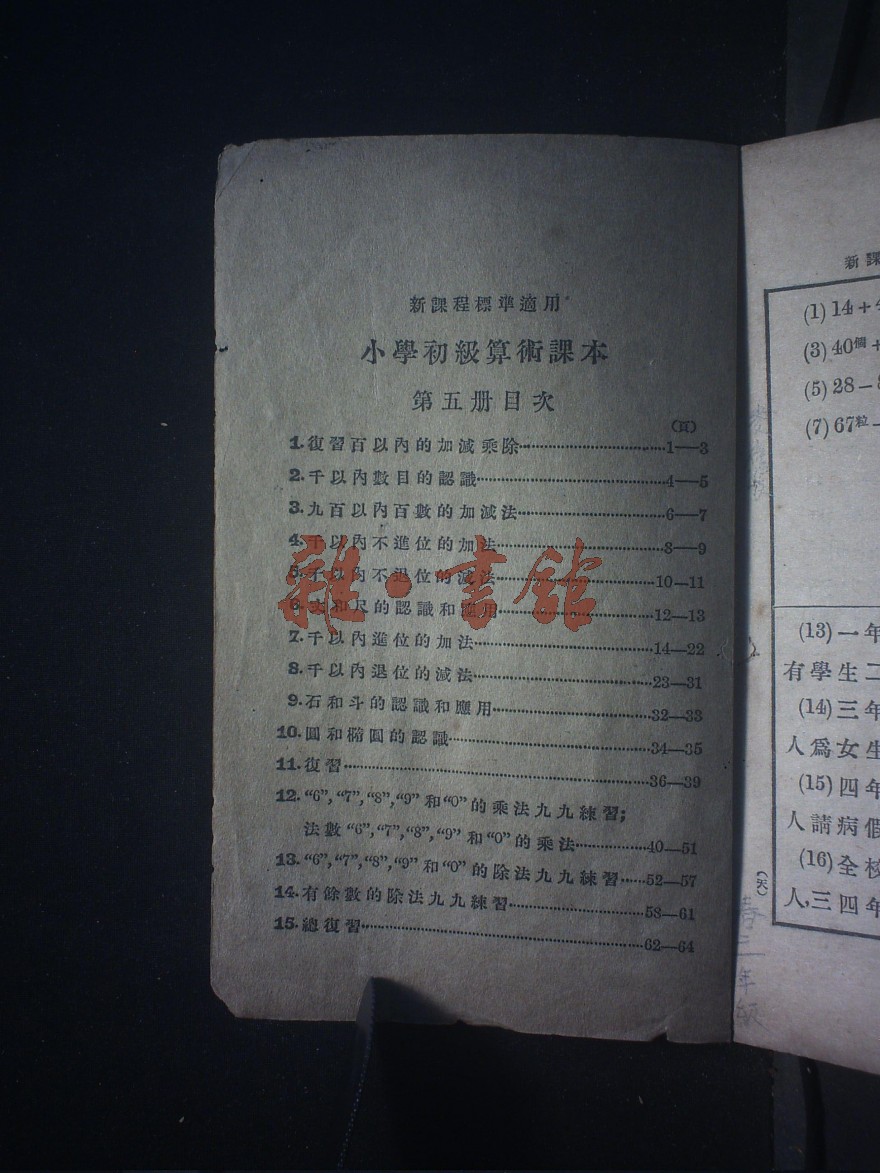 新課程標準適用
小學初級算術課本
第五册目次
(頁)
1.復習百以內的加減乘除……1—3
2.千以內數目的認識……4—5
3.九百以內百數的加減法……6—7
4.千以內不進位的加法……8—9
5.千以內不退位的減法……10—11
6.丈和尺的認識和應用……12—13
7.千以內進位的加法……14—22
8.千以內退位的減法……23—31
9.石和斗的認識和應用……32—33
10.圓和橢圓的認識……34—35
11.復習……36—39
12.“6”,“7”,“8”,“9”和“0”的乘法九九練習;
法數“6”,“7”,“8”,“9”和“0”的乘法……40—51
13.“6”,“7”,“8”,“9”和“0”的除法九九練習……52—57
14.有餘數的除法九九練習……58—61
15.總復習……62—64
雜·書館
新課
(1) 14+4
(3) 40個+
(5) 28-8
(7) 67粒-
(13) 一年
有學生二
(14) 三年
人爲女生
(15) 四年
人請病假
(16) 全校
人,三四年